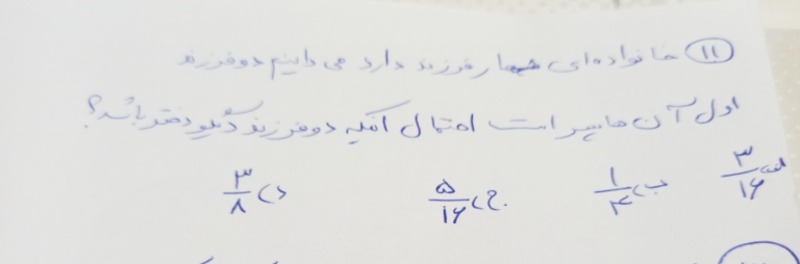 ۱۱) خانواده‌ای چهار فرزند دارد می دانیم دو فرزند
اول آن ها پسر است احتمال آنکه دو فرزند دیگر دختر باشد؟
الف) ۳/۱۶ ب) ۱/۴ ج) ۵/۱۶ د) ۳/۸